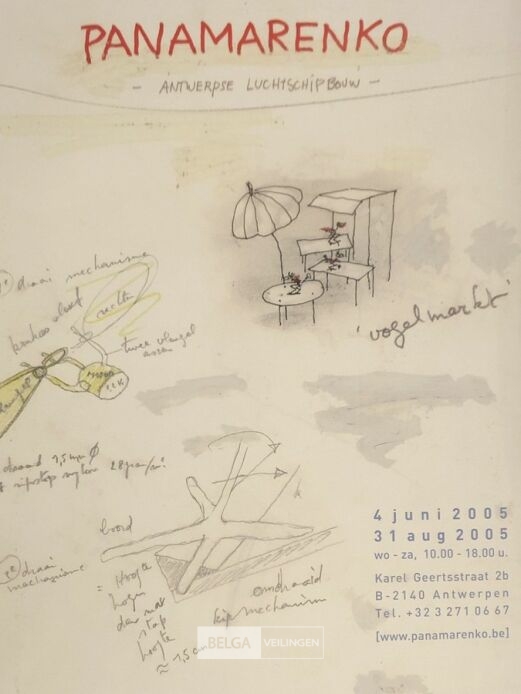 PANAMARENKO
- ANTWERPSE LUCHTSCHIPBOUW -
draai mechanisme
rechts
twee vleugel
assen
'vogelmarkt'
draad 1,5 mm Ø
ripstop nylon 28 gram/m²
4 juni 2005
31 aug 2005
wo - za, 10.00 - 18.00 u.
Karel Geertsstraat 2b
B-2140 Antwerpen
Tel. +32 3 271 06 67
[www.panamarenko.be]
boord
draai
mechanisme
= Hoogte
stap
hoogte
≈ 1,5 cm
omdraaid
kip mechanism
BELGA VEILINGEN